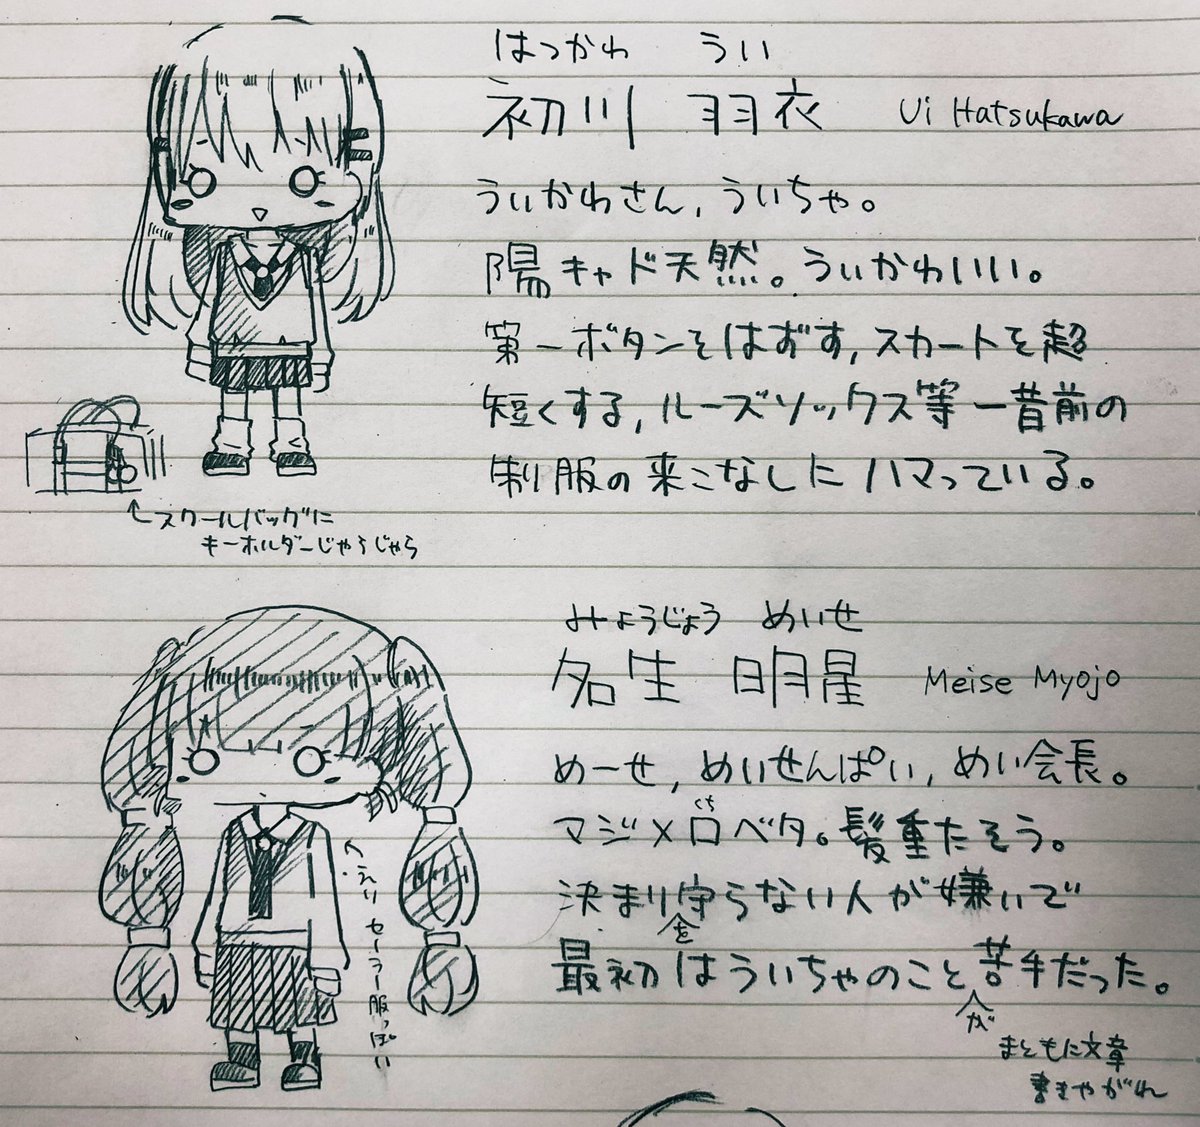 はつかわ うい
初川 羽衣 Ui Hatsukawa
ういかわさん, ういちゃ。
陽キャド天然。ういかわいい。
第一ボタンをはずす, スカートを超
短くする, ルーズソックス等一昔前の
制服の来こなしにハマっている。
←スクールバッグに
キーホルダーじゃらじゃら
みょうじょう めいせ
名生 明星 Meise Myojo
めーせ, めいせんぱい, めい会長。
くち
マジメ口ベタ。髪重たそう。
決まり守らない人が嫌いで
を
最初はういちゃのこと苦手だった。
が
まともに文章
書きやがれ
↑えりセーラー服っぽい